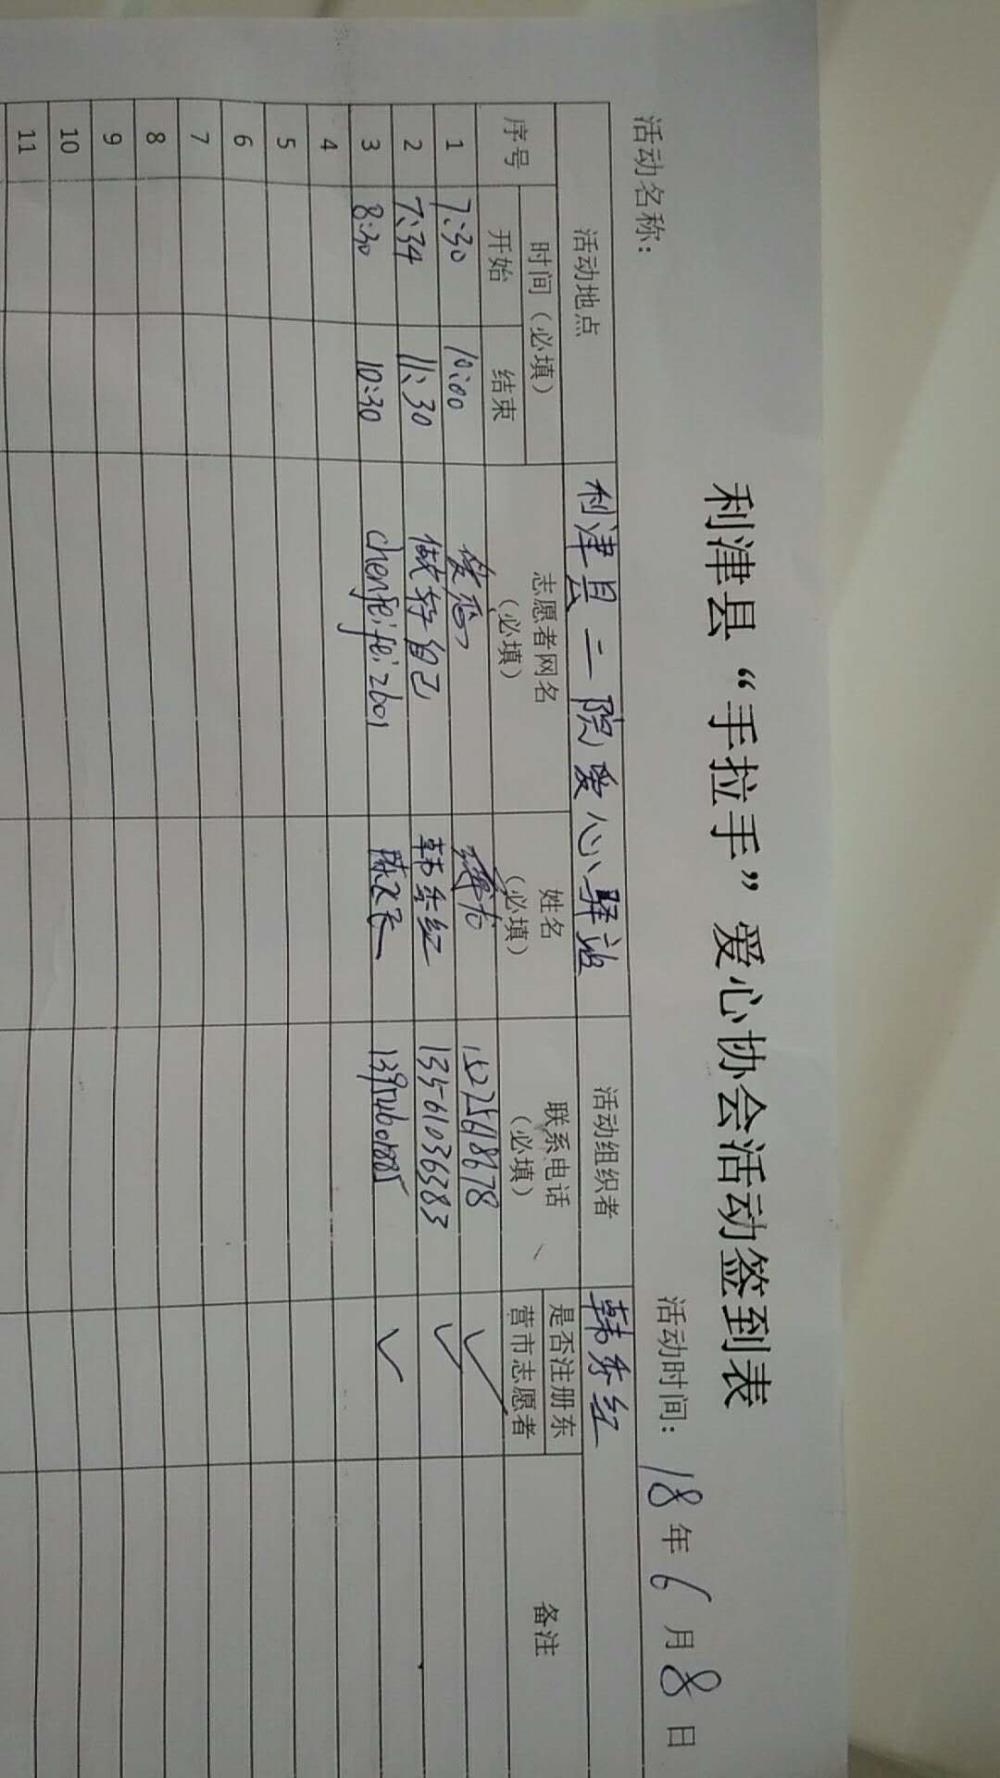 利津县“手拉手”爱心协会活动签到表
活动名称： 活动时间：18年6月8日
活动地点 利津县二院爱心驿站 活动组织者 韩乐红
序号 时间（必填） 志愿者网名（必填） 姓名（必填） 联系电话（必填） 是否注册东营市志愿者 备注
开始 结束
1 7:30 10:00 15225618678 ✓
2 7:34 11:30 做好自己 韩乐红 13561036383 ✓
3 8:30 10:30 chenfeifei2601 陈飞飞 13954601885 ✓
4
5
6
7
8
9
10
11